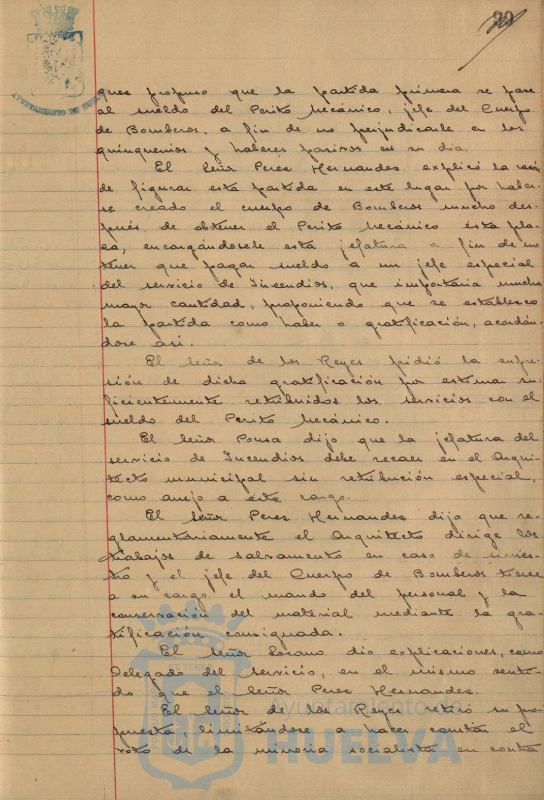 99
AYUNTAMIENTO DE
quez propuso que la partida primera se pase
al sueldo del Perito Mecánico, jefe del Cuerpo
de Bomberos, a fin de no perjudicarle en los
quinquenios y haberes pasivos en su dia.
El Señor Perez Hernandez explicó la razón
de figurar esta partida en este lugar por haber-
se creado el cuerpo de Bomberos mucho des-
pués de obtener el Perito Mecánico esta pla-
za, encargándosele esta jefatura a fin de no
tener que pagar sueldo a un jefe especial
del servicio de Incendios, que importaria mucha
mayor cantidad, proponiendo que se establezca
la partida como haber o gratificación, acordán-
dose asi.
El Señor de los Reyes pidió la supre-
sión de dicha gratificación por estimar su-
ficientemente retribuidos los servicios con el
sueldo del Perito Mecánico.
El Señor Ponsa dijo que la jefatura del
servicio de Incendios debe recaer en el Arqui-
tecto municipal sin retribución especial,
como anejo a este cargo.
El Señor Perez Hernandez dijo que re-
glamentariamente el Arquitecto dirige los
trabajos de salvamento en caso de sinies-
tro y el jefe del Cuerpo de Bomberos tiene
a su cargo el mando del personal y la
conservación del material mediante la gra-
tificación consignada.
El Señor Lozano dio explicaciones, como
Delegado del Servicio, en el mismo senti-
do que el Señor Perez Hernandez.
El Señor de los Reyes retiró su pro-
puesta, limitándose a hacer constar el
voto de la minoria socialista en contra
Ayuntamiento de
HUELVA